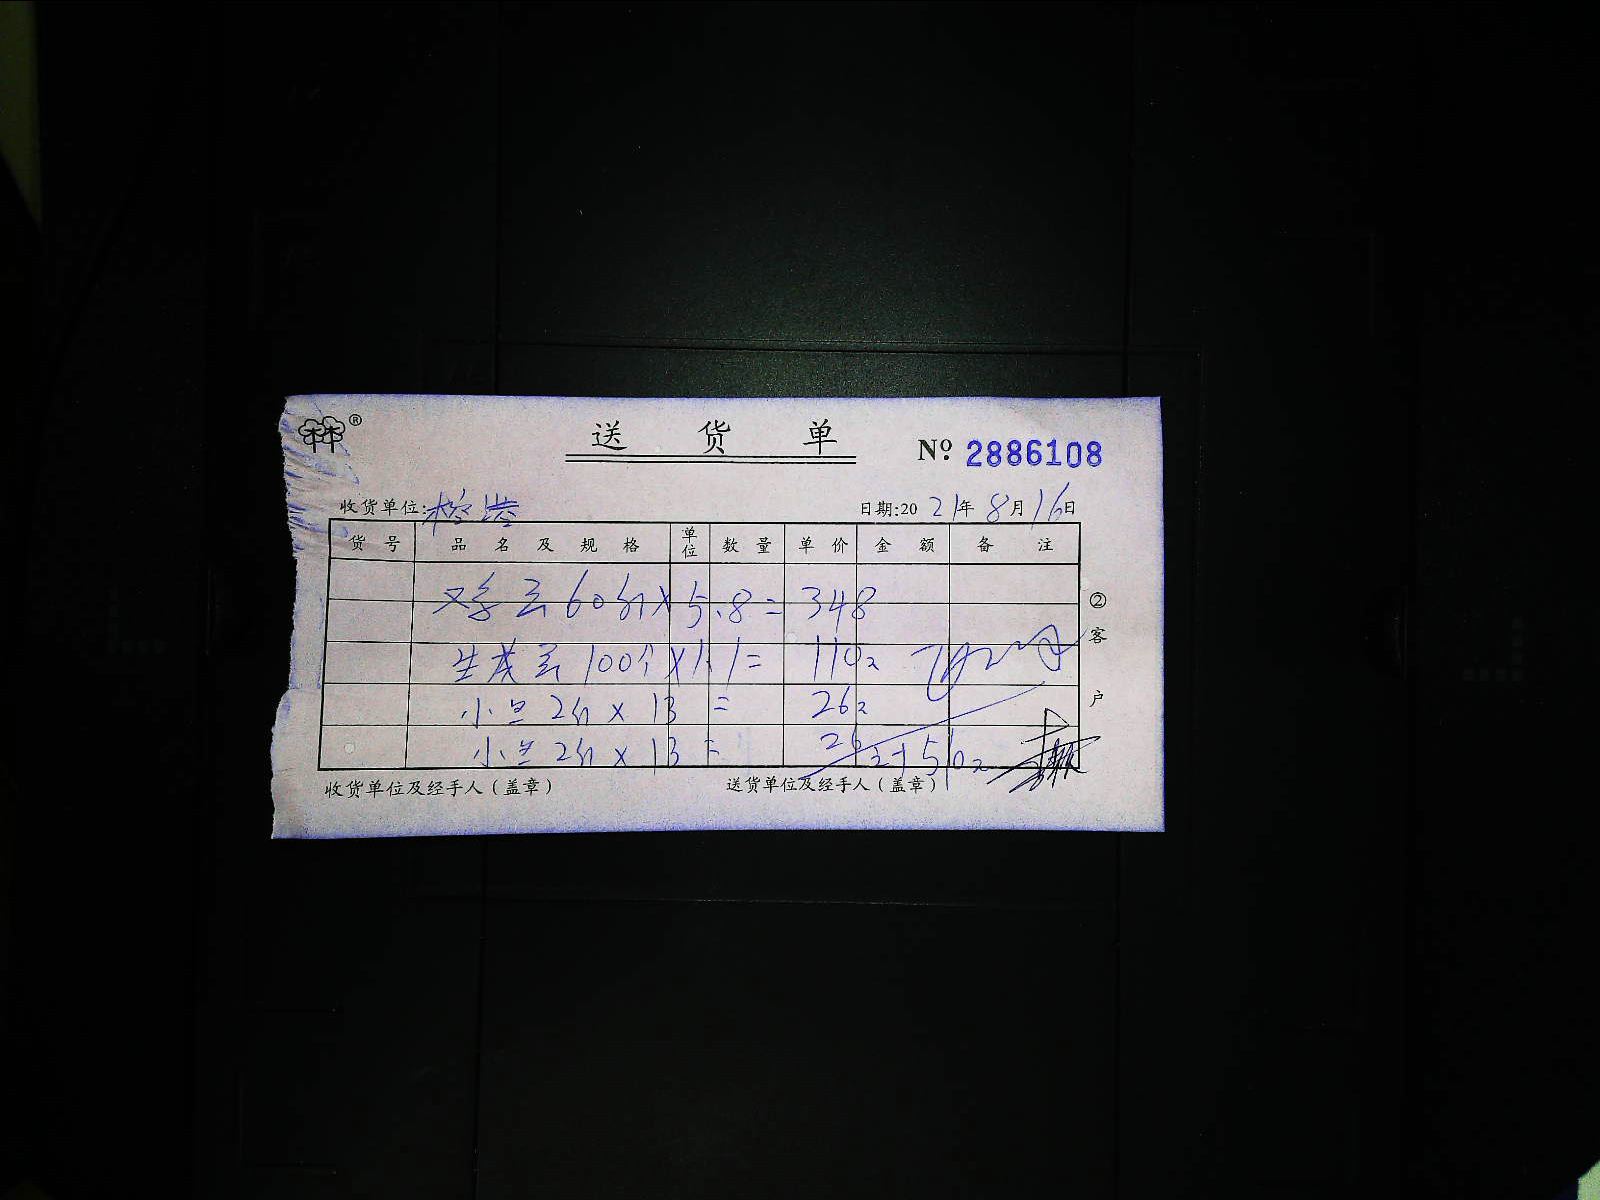 送货单 № 2886108
收货单位:榕港 日期:2021年8月16日
货号 品名及规格 单位 数量 单价 金额 备注
60 × 5.8 = 348
100个 × 1.1 = 110
小 2 × 13 = 26
小 2 × 13 = 26
计510
②客户
收货单位及经手人(盖章) 送货单位及经手人(盖章)